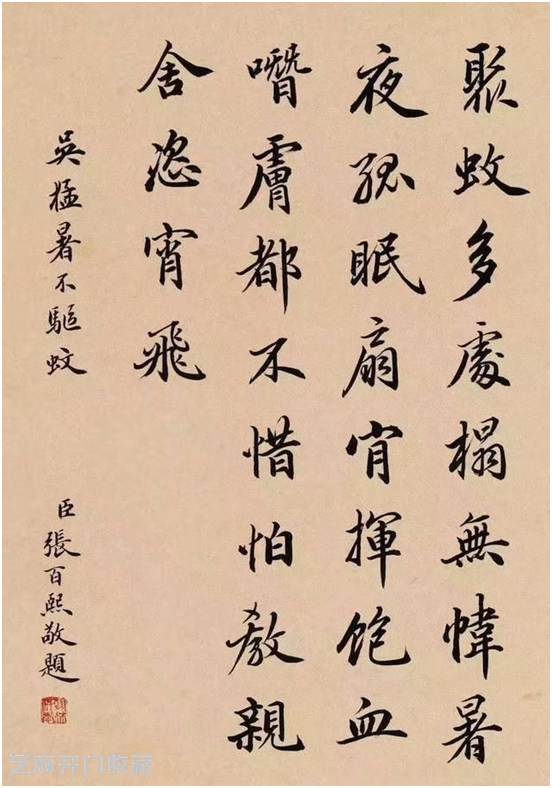 聚蚊多處榻無幃暑
夜孤眠扇肯揮飽血
噆膚都不惜怕教親
舍恣宵飛
吳猛暑不驅蚊
臣張百熙敬題
芝麻开门收藏